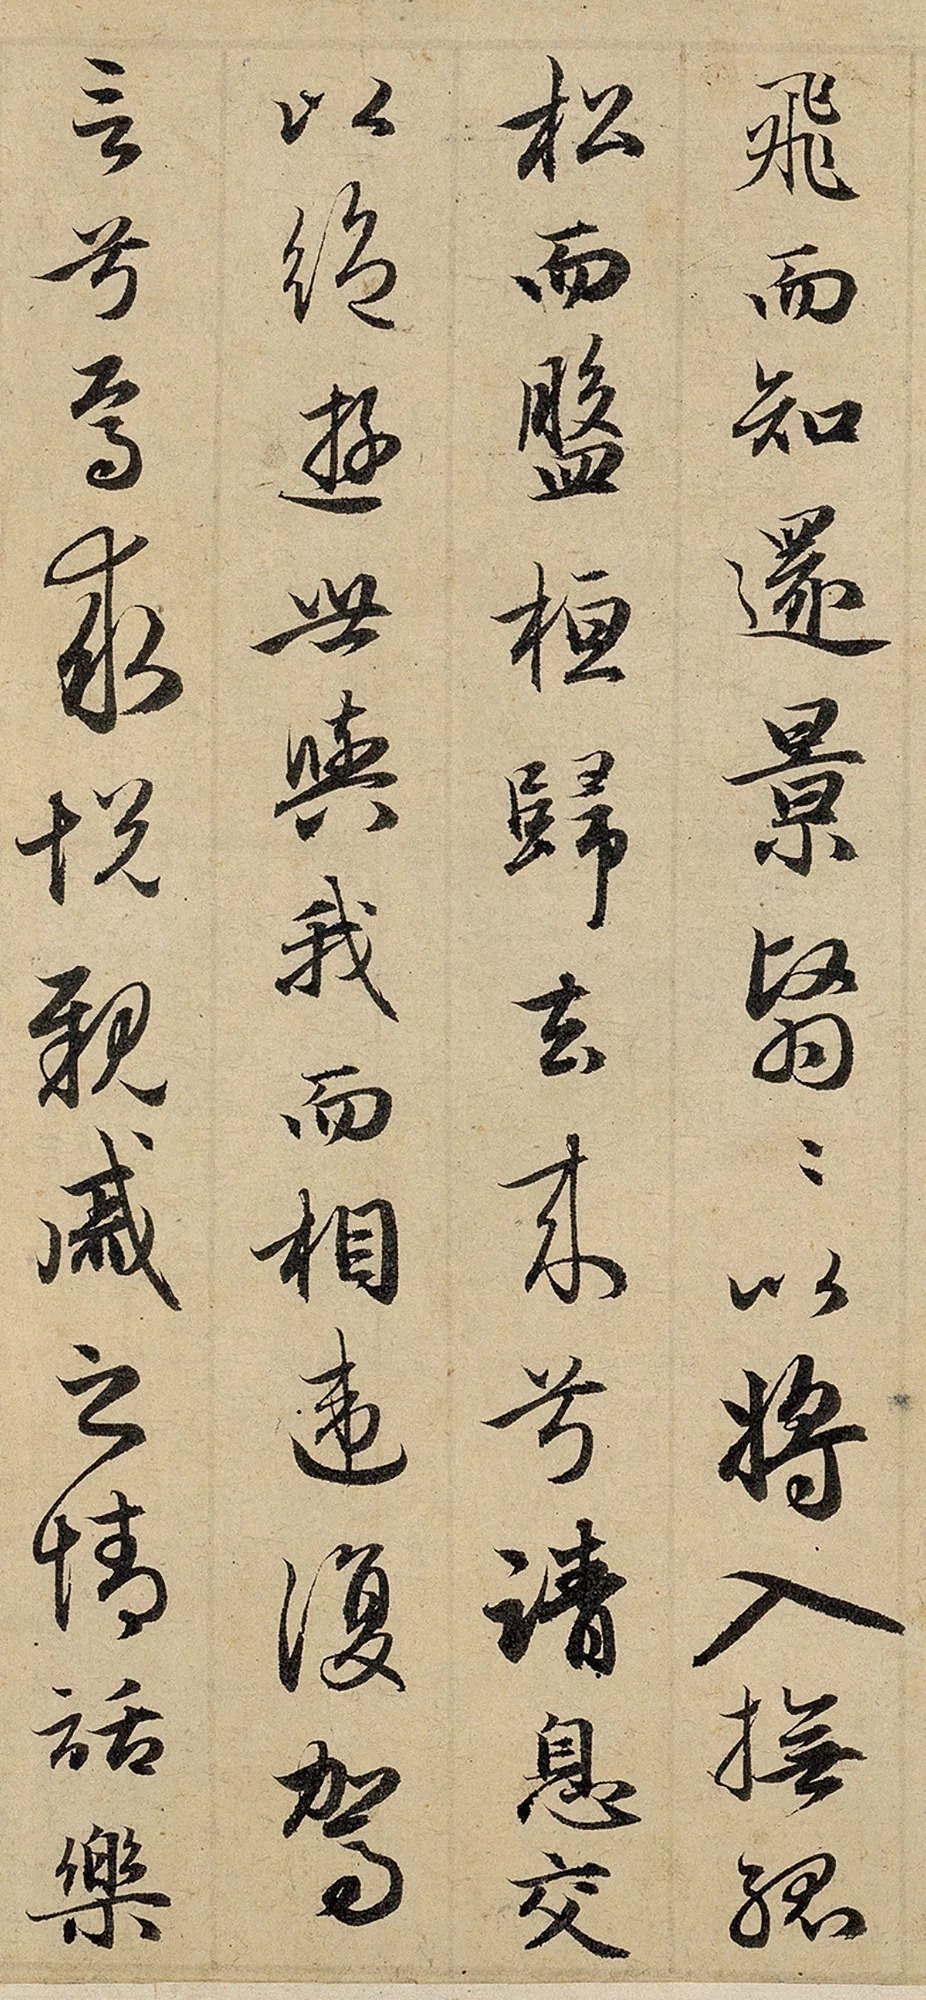 飛而知還景翳〻以將入撫孤
松而盤桓歸去来兮請息交
以絕遊世與我而相違復駕
言兮焉求悅親戚之情話樂